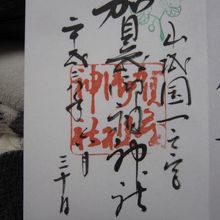 山城国一之宮
賀茂御祖神社
賀茂御祖神社
月三十日